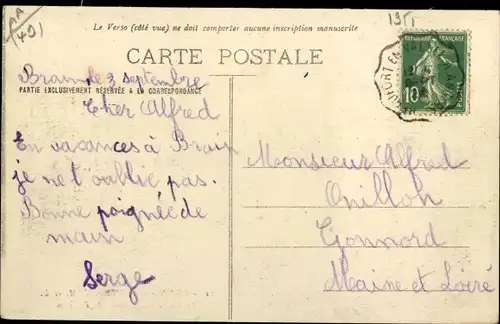 AA
491
Le Verso (côté vue) ne doit comporter aucune inscription manuscrite
CARTE POSTALE
PARTIE EXCLUSIVEMENT RÉSERVÉE A LA CORRESPONDANCE
le 3 septembre
Cher Alfred
En vacances à Brain
je ne t'oublie pas.
Bonne poignée de
main
Serge
Monsieur Alfred
Onillon
Gonnord
Maine et Loire
REPUBLIQUE FRANÇAISE
10